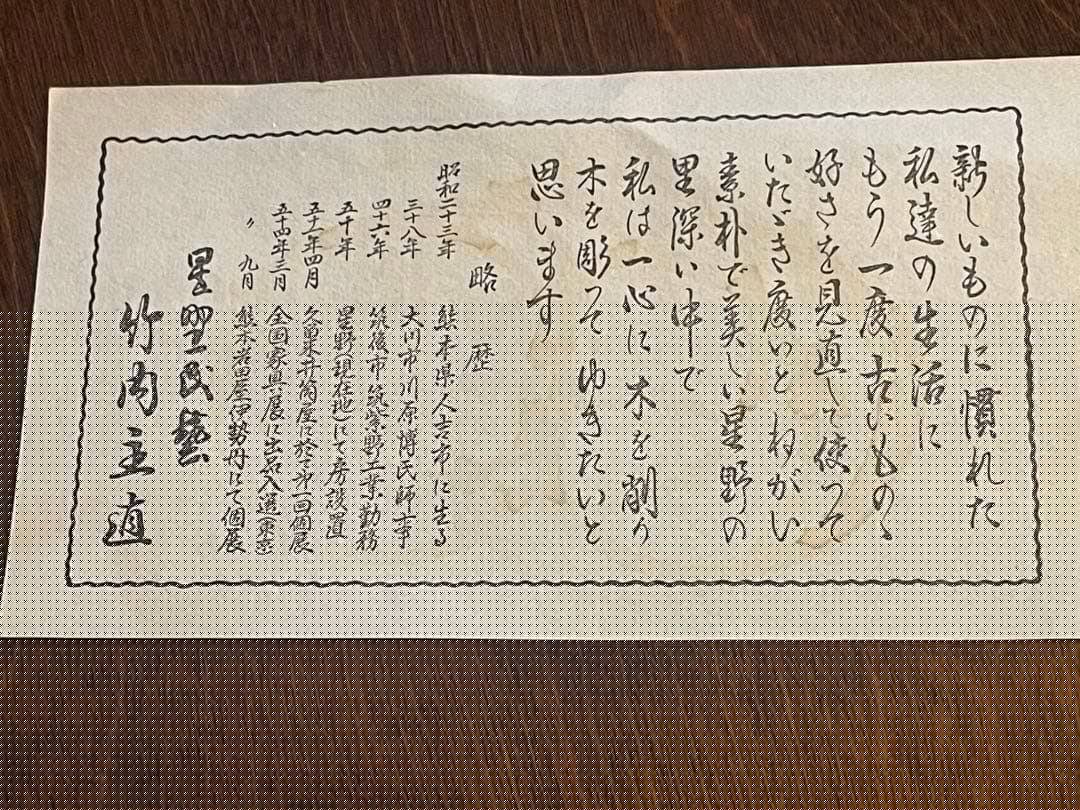 新しいものに慣れた
私達の生活に
もう一度古いものゝ
好さを見直して使って
いたゞき度いとねがい
素朴で美しい星野の
里深い中で
私は一心に木を削り
木を彫ってゆきたいと
思います
略歴
昭和二十三年 熊本県人吉市に生る
三十八年 大川市川原博氏師事
四十六年 筑後市筑紫野工業勤務
五十年 星野現在地にて房設置
五十一年四月 久留米井筒屋に於て第一回個展
五十四年三月 全国家具展に出品入選東京
〃 九月 熊本岩田屋伊勢丹にて個展
星野民藝
竹内主直